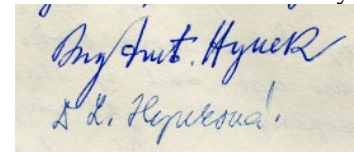 Ing Ant. Hynek
D L. Hynková.